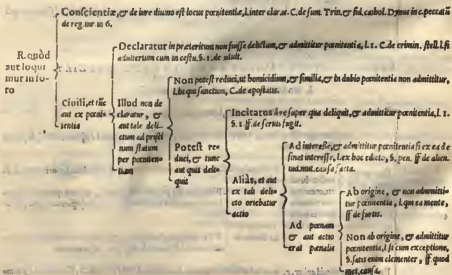 R. quòd
aut loqui
mur in fo-
ro
Conscientiæ, & de iure diuino est locus pœnitentiæ, l. inter claras. C. de sum. Trin. & fid. cathol. in c. peccatū
de reg. iur. in 6.
Ciuili, et tūc
aut ex pœni
tentia
Declaratur in præteritum non fuisse delictum, & admittitur pœnitentia, l. 1. C. de crimin. stell. l. si
adulterium cum incestu. §. 1. de adult.
Illud non de
claratur, &
aut tale deli-
ctum ad pristi
num statum
per pœniten-
tiam
Non potest reduci, ut homicidium, & similia, & in dubio pœnitentia non admittitur,
l. hi qui sanctam, C. de apostatis.
Potest re
duci, & tunc
aut quis deli-
quit
Incitatus super qua deliquit, & admittitur pœnitentia, l. 1.
§. 1. ff. de seruis fugit.
Aliàs, et aut
ex tali deli-
cto oriebatur
actio
Ad interesse, & admittitur pœnitentia si ex ea de
sinat interesse, l. ex hoc edicto, §. pen. ff. de alien.
iud. mut. causa facta.
Ad pœnam
& aut actio
erat pœnalis
Ab origine, & non admitti-
tur pœnitentia, l. qui ea mente,
ff. de furtis.
Non ab origine, & admittitur
pœnitentia, l. si cum exceptione,
§. satis enim clementer, ff. quod
met. causa.